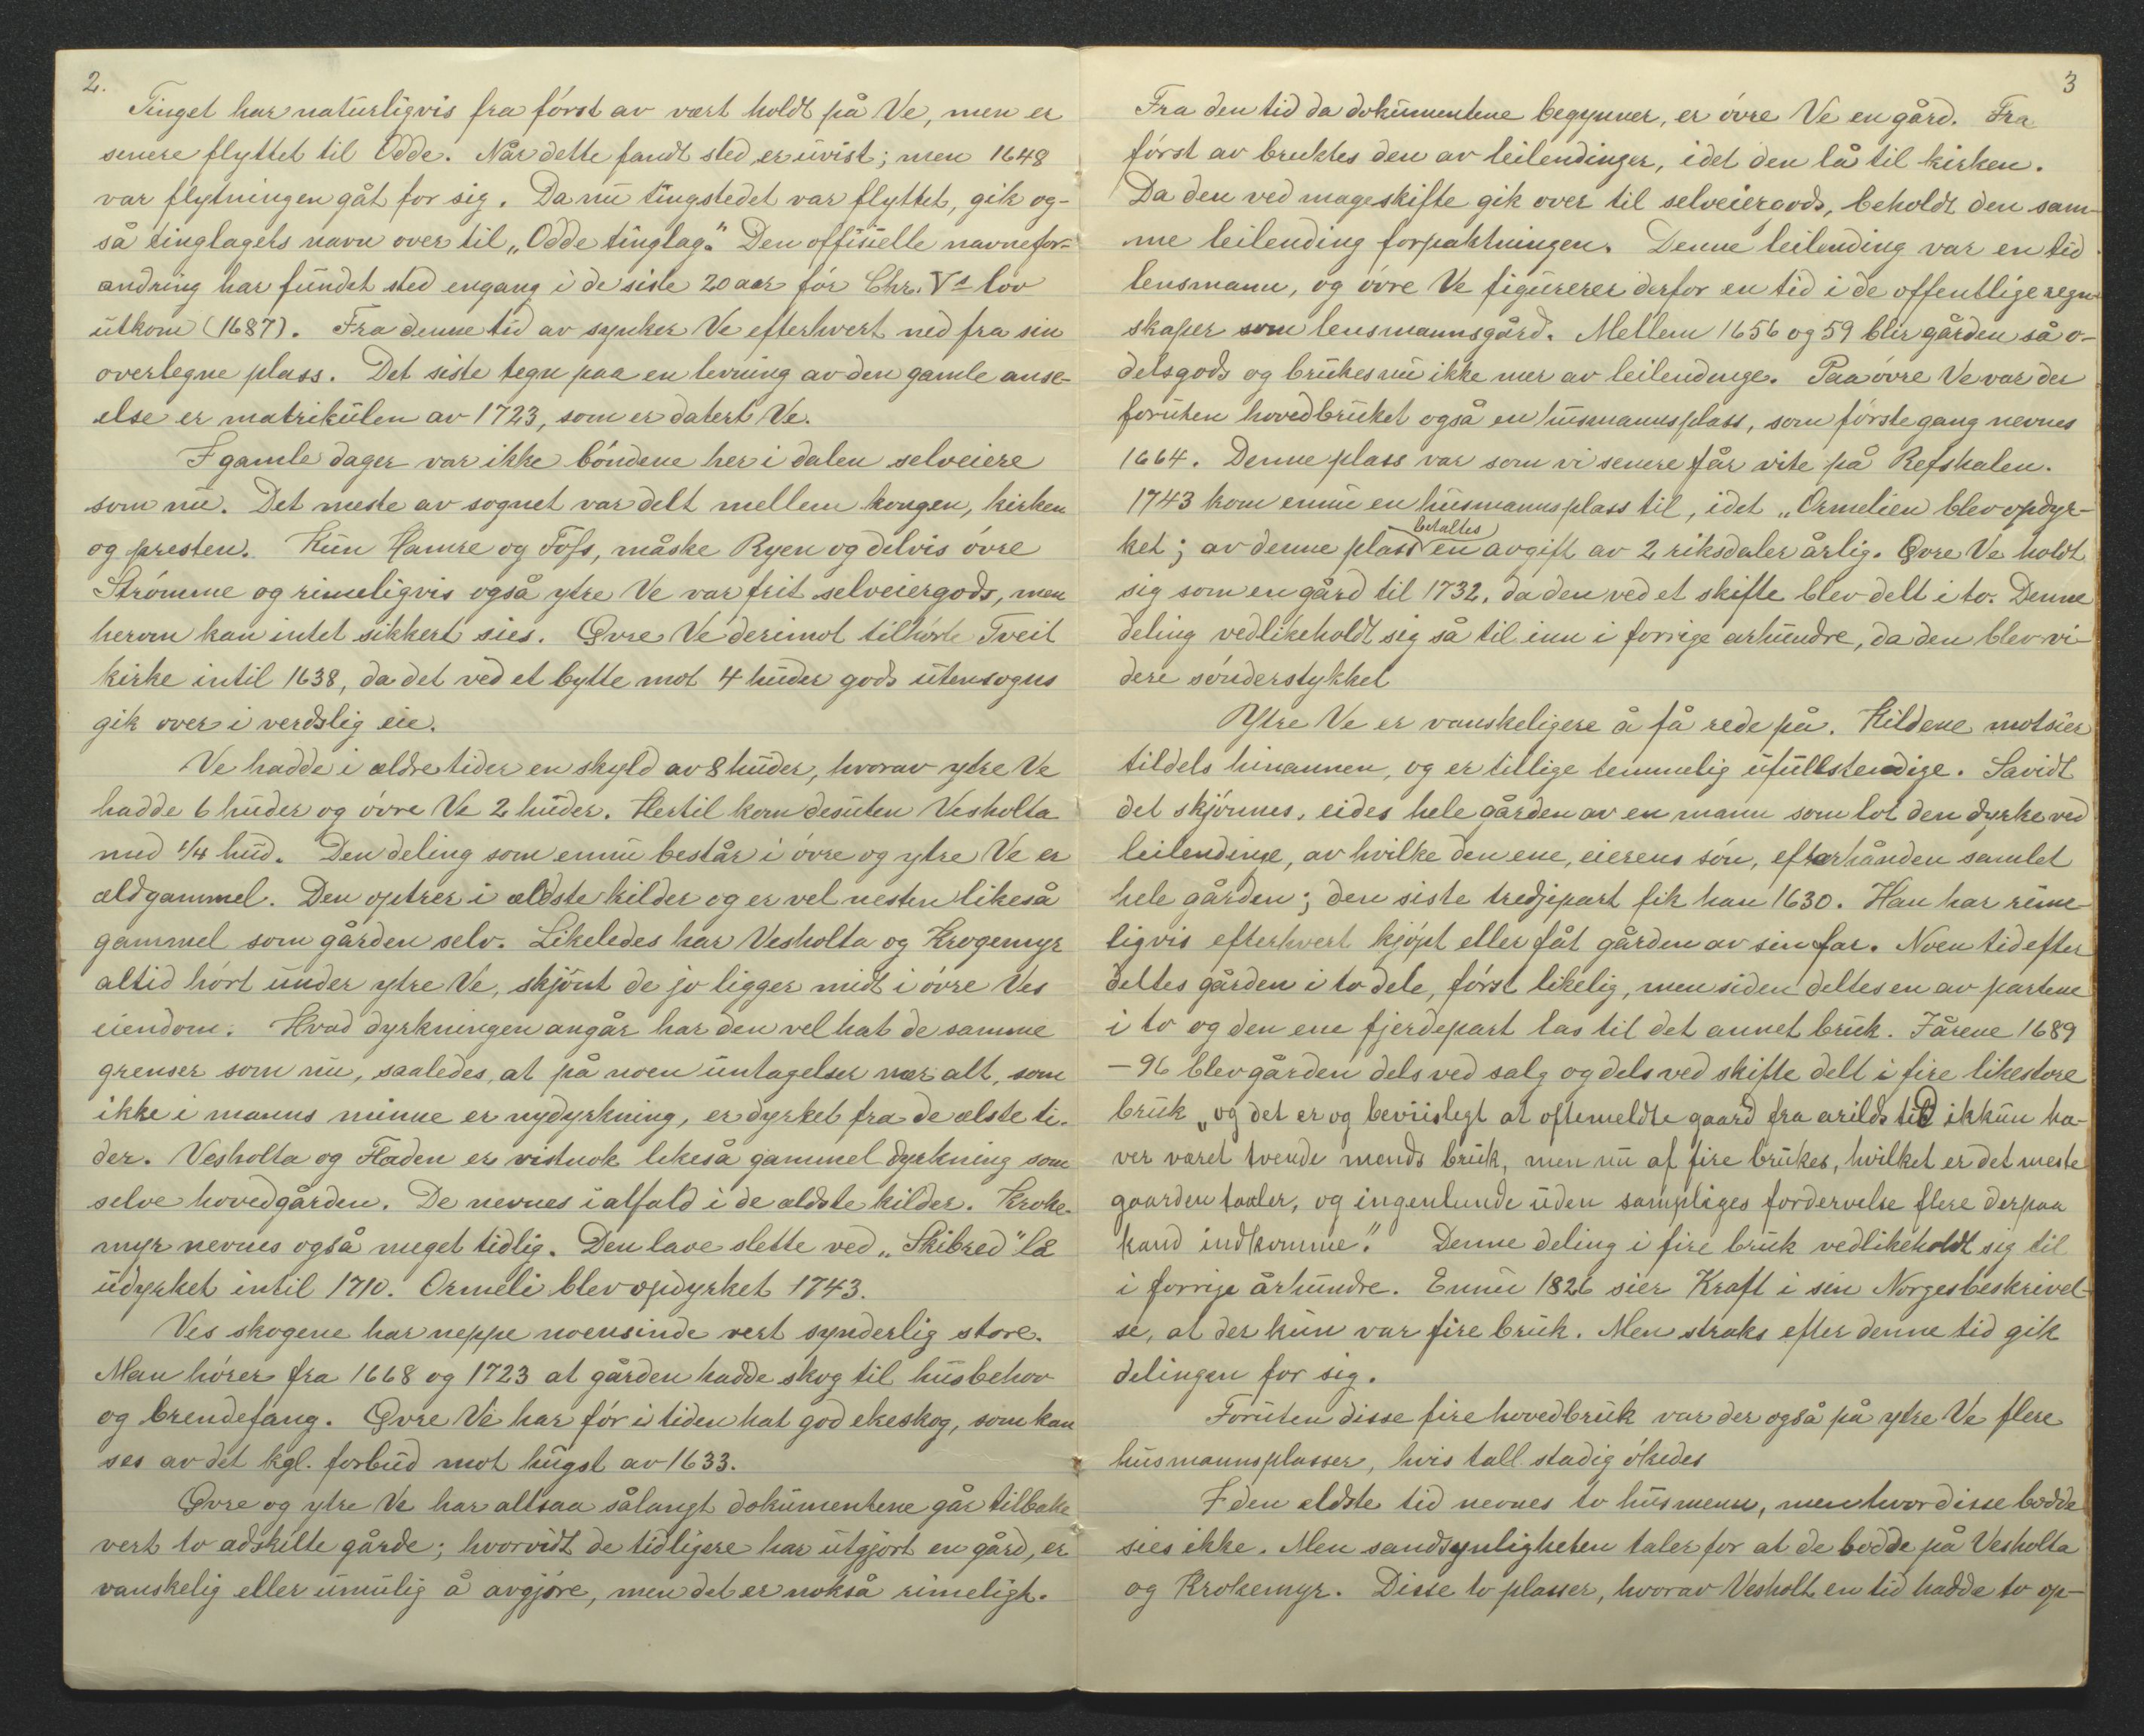 2.
Tinget har naturligvis fra först av vært holdt på Ve, men er
senere flyttet til Odde. Når dette fandt sted er uvist; men 1648
var flytningen gåt for sig. Da nu tingstedet var flyttet, gik og-
så tinglagets navn over til „Odde tinglag." Den offisielle navnefor-
andring har fundet sted engang i de siste 20 aar för Chr. Vs lov
utkom (1687). Fra denne tid av synker Ve efterhvert ned fra sin
overlegne plass. Det siste tegn paa en levning av den gamle anse-
else er matrikulen av 1723, som er datert Ve.
I gamle dager var ikke böndene her i dalen selveiere
som nu. Det meste av sognet var delt mellem kongen, kirken
og presten. Kun Hamre og Tofs, måske Ryen og delvis övre
Strömme og rimeligvis også ytre Ve var frit selveiergods, men
herom kan intet sikkert sies. Øvre Ve derimot tilhörte Tveit
kirke intil 1638, da det ved et bytte mot 4 huder gods utensogns
gik over i verdslig eie.
Ve hadde i ældre tider en skyld av 8 huder, hvorav ytre Ve
hadde 6 huder og övre Ve 2 huder. Hertil kom desuten Vesholta
med 1/4 hud. Den deling som ennu består i övre og ytre Ve er
ældgammel. Den optrer i ældste kilder og er vel nesten likeså
gammel som gården selv. Likeledes har Vesholta og Krogemyr
altid hört under ytre Ve, skjönt de jo ligger midt i övre Ves
eiendom. Hvad dyrkningen angår har den vel hat de samme
grenser som nu, saaledes, at på noen untagelser nær alt, som
ikke i manns minne er nydyrkning, er dyrket fra de ælste ti-
der. Vesholta og Fladen er vistnok likeså gammel dyrkning som
selve hovedgården. De nevnes ialfald i de ældste kilder. Kroke-
myr nevnes også meget tidlig. Den lave slette ved „Skibred" lå
udyrket intil 1710. Ormeli blev opdyrket 1743.
Ves skogene har neppe noensinde vert synderlig store.
Man hörer fra 1668 og 1723 at gården hadde skog til husbehov
og brendefang. Øvre Ve har för i tiden hat god ekeskog, som kan
ses av det kgl. forbud mot hugst av 1633.
Øvre og ytre Ve har altsaa sålangt dokumentene går tilbake
vert to adskilte gårde; hvorvidt de tidligere har utgjort en gård, er
vanskelig eller umulig å avgjöre, men det er nokså rimeligt.
3
Fra den tid da dokumentene begynner, er övre Ve en gård. Fra
först av bruktes den av leilendinger, idet den lå til kirken.
Da den ved mageskifte gik over til selveiergods, beholdt den sam-
me leilending forpaktningen. Denne leilending var en tid
lensmann, og övre Ve figurerer derfor en tid i de offentlige regn-
skaper som lensmannsgård. Mellem 1656 og 59 blir gården så o-
delsgods og brukes nu ikke mer av leilendinge. Paa övre Ve var der
foruten hovedbruket også en husmannsplass, som förste gang nevnes
1664. Denne plass var som vi senere får vite på Refshalen.
1743 kom ennu en husmannsplass til, idet „Ormelien blev opdyr-
betaltes
ket; av denne plass en avgift av 2 riksdaler årlig. Øvre Ve holdt
sig som en gård til 1732, da den ved et skifte blev delt i to. Denne
deling vedlikeholdt sig så til inn i forrige arhundre, da den blev vi-
dere sönderstykket
Ytre Ve er vanskeligere å få rede på. Kildene motsier
tildels hinannen, og er tillige temmelig ufullstendige. Savidt
det skjönnes, eides hele gården av en mann som lot den dyrke ved
leilendinge, av hvilke den ene, eierens sön, efterhånden samlet
hele gården; den siste tredjepart fik han 1630. Han har rime-
ligvis efterhvert kjöpt eller fåt gården av sin far. Noen tid efter
deltes gården i to dele, först likelig, men siden deltes en av partene
i to og den ene fjerdepart las til det annet bruk. I årene 1689
–96 blev gården dels ved salg og dels ved skifte delt i fire likestore
bruk „og det er og beviisligt at oftemeldte gaard fra arilds tid ikkun ha-
ver været tvende mends bruk, men nu af fire brukes, hvilket er det meste
gaarden taaler, og ingenlunde uden samptliges fordervelse flere derpaa
kand indkomme." Denne deling i fire bruk vedlikeholdt sig til
i forrige århundre. Ennu 1826 sier Kraft i sin Norgesbeskrivel-
se, at der kun var fire bruk. Men straks efter denne tid gik
delingen for sig.
Foruten disse fire hovedbruk var der også på ytre Ve flere
husmannsplasser, hvis tall stadig ökedes
I den eldste tid nevnes to husmenn, men hvor disse bodde
sies ikke. Men sandsynligheten taler for at de bodde på Vesholta
og Krokemyr. Disse to plasser, hvorav Vesholt en tid hadde to op-